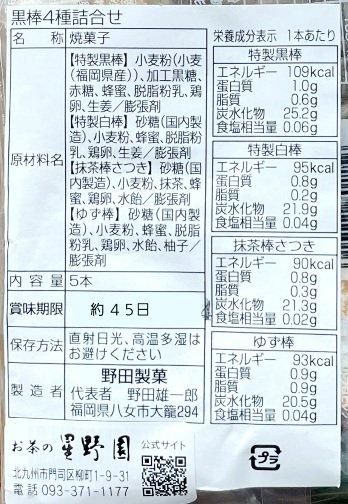 黒棒4種詰合せ
名 称 焼菓子
原材料名
【特製黒棒】小麦粉(小麦
(福岡県産))、加工黒糖、
赤糖、蜂蜜、脱脂粉乳、鶏
卵、生姜／膨張剤
【特製白棒】砂糖(国内製
造)、小麦粉、蜂蜜、脱脂粉
乳、鶏卵、生姜／膨張剤
【抹茶棒さつき】砂糖(国
内製造)、小麦粉、抹茶、蜂
蜜、鶏卵、水飴／膨張剤
【ゆず棒】砂糖(国内製
造)、小麦粉、蜂蜜、脱脂
粉乳、鶏卵、水飴、柚子／
膨張剤
内 容 量 5本
賞味期限 約45日
保存方法 直射日光、高温多湿は
お避けください
製 造 者 野田製菓
代表者 野田雄一郎
福岡県八女市大籠294
栄養成分表示 1本あたり
特製黒棒
エネルギー 109kcal
蛋白質 1.0g
脂質 0.6g
炭水化物 25.2g
食塩相当量 0.06g
特製白棒
エネルギー 95kcal
蛋白質 0.8g
脂質 0.2g
炭水化物 21.9g
食塩相当量 0.04g
抹茶棒さつき
エネルギー 90kcal
蛋白質 0.8g
脂質 0.3g
炭水化物 21.3g
食塩相当量 0.02g
ゆず棒
エネルギー 93kcal
蛋白質 0.9g
脂質 0.9g
炭水化物 20.5g
食塩相当量 0.04g
お茶の 星野園 公式サイト
北九州市門司区柳町1-9-31
電 話 093-371-1177
紙